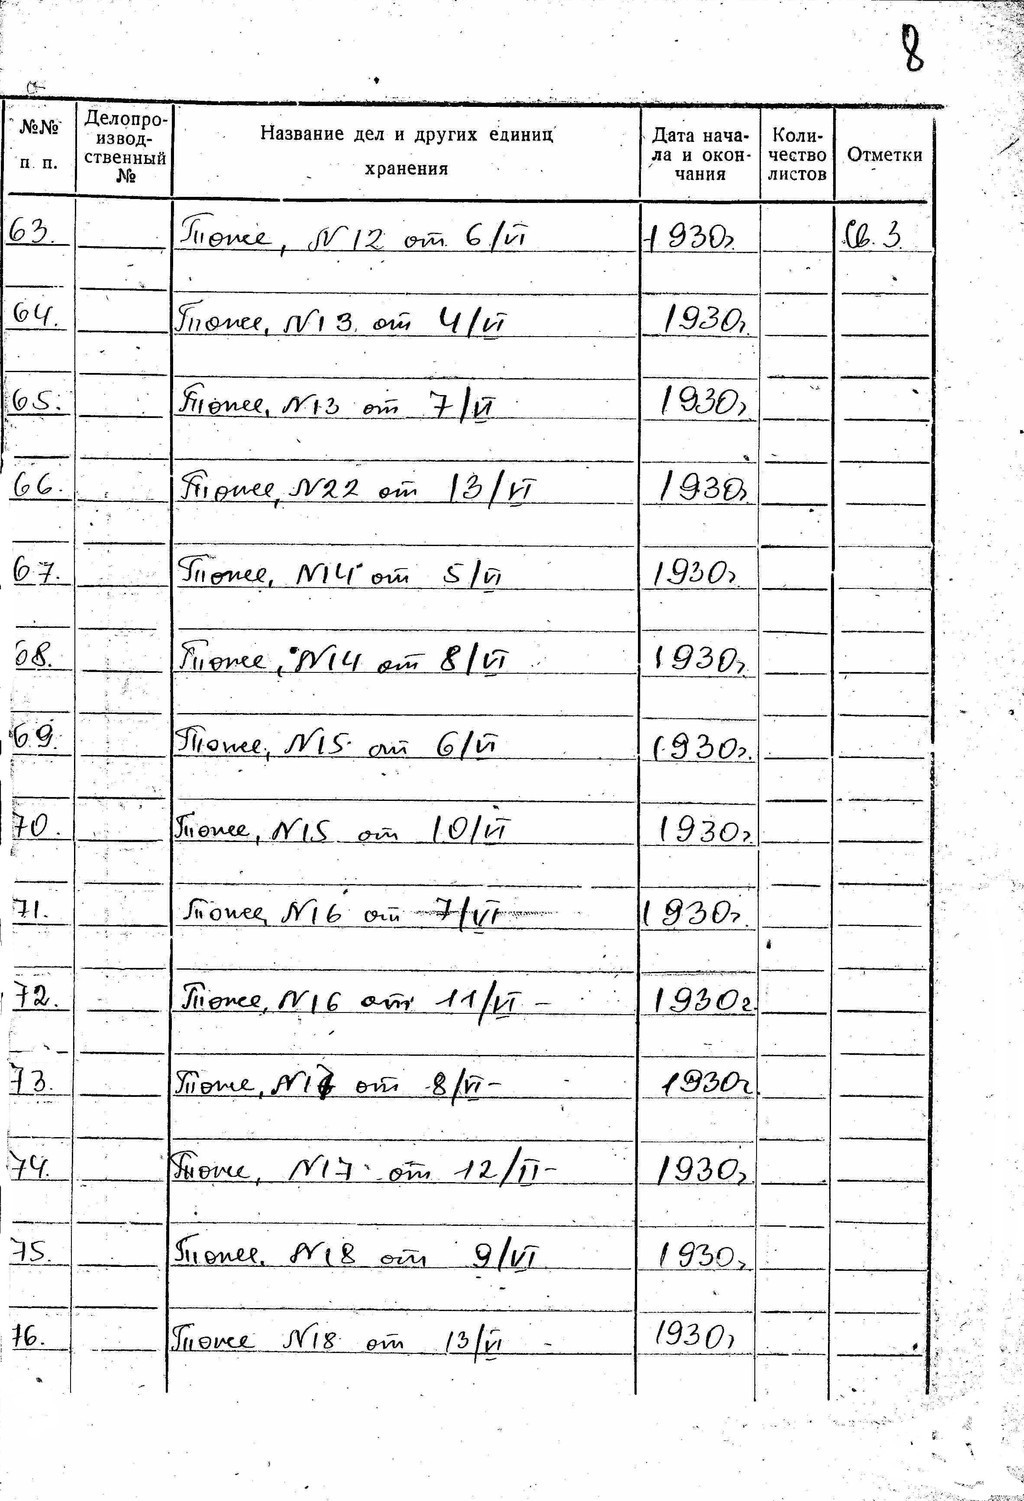 8
№№ п. п. Делопро- извод- ственный № Название дел и других единиц хранения Дата нача- ла и окон- чания Коли- чество листов Отметки
63. Тоже, N12 от 6/VI 1930г. Св. 3
64. Тоже, N13 от 4/VI 1930г.
65. Тоже, N13 от 7/VI 1930г.
66. Тоже, N22 от 13/VI 1930г.
67. Тоже, N14 от 5/VI 1930г.
68. Тоже, N14 от 8/VI 1930г.
69. Тоже, N15 от 6/VI 1930г.
70. Тоже, N15 от 10/VI 1930г.
71. Тоже, N16 от 7/VI 1930г.
72. Тоже, N16 от 11/VI - 1930г.
73. Тоже, N17 от 8/VI - 1930г.
74. Тоже, N17 от 12/II - 1930г.
75. Тоже, N18 от 9/VI 1930г.
76. Тоже N18 от 13/VI - 1930г